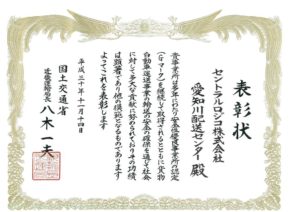 表彰状
セントラルロジコ株式会社
愛知川配送センター殿
貴事業所は多年にわたり安全性優良事業所の認定
(Gマーク)を継続して取得されるとともに貨物
自動車運送事業の輸送の安全の確保を通じ社会
に対し多大な貢献に努められておりその功績
は顕著であり他の模範となるものであります
よってこれを表彰します
平成三十年十一月十四日
国土交通省
近畿運輸局長 八木一夫